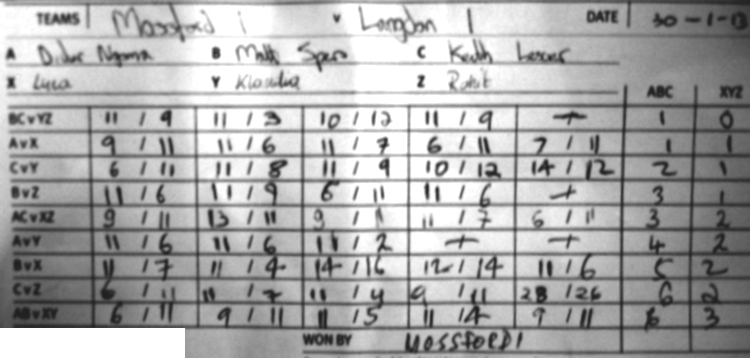 TEAMS Mossford 1 v Langdon 1 DATE 30-1-13
A B Matt C Keith
X Luca Y Klaudia Z
ABC XYZ
BCvYZ 11/9 11/3 10/12 11/9 + 1 0
AvX 9/11 11/6 11/7 6/11 7/11 1 1
CvY 6/11 11/8 11/9 10/12 14/12 2 1
BvZ 11/6 11/9 6/11 11/6 + 3 1
ACvXZ 9/11 13/11 9/11 11/7 6/11 3 2
AvY 11/6 11/6 11/2 + + 4 2
BvX 11/7 11/4 14/16 12/14 11/6 5 2
CvZ 6/11 11/7 11/4 9/11 28/26 6 2
ABvXY 6/11 9/11 11/5 11/4 9/11 6 3
WON BY MOSSFORD 1